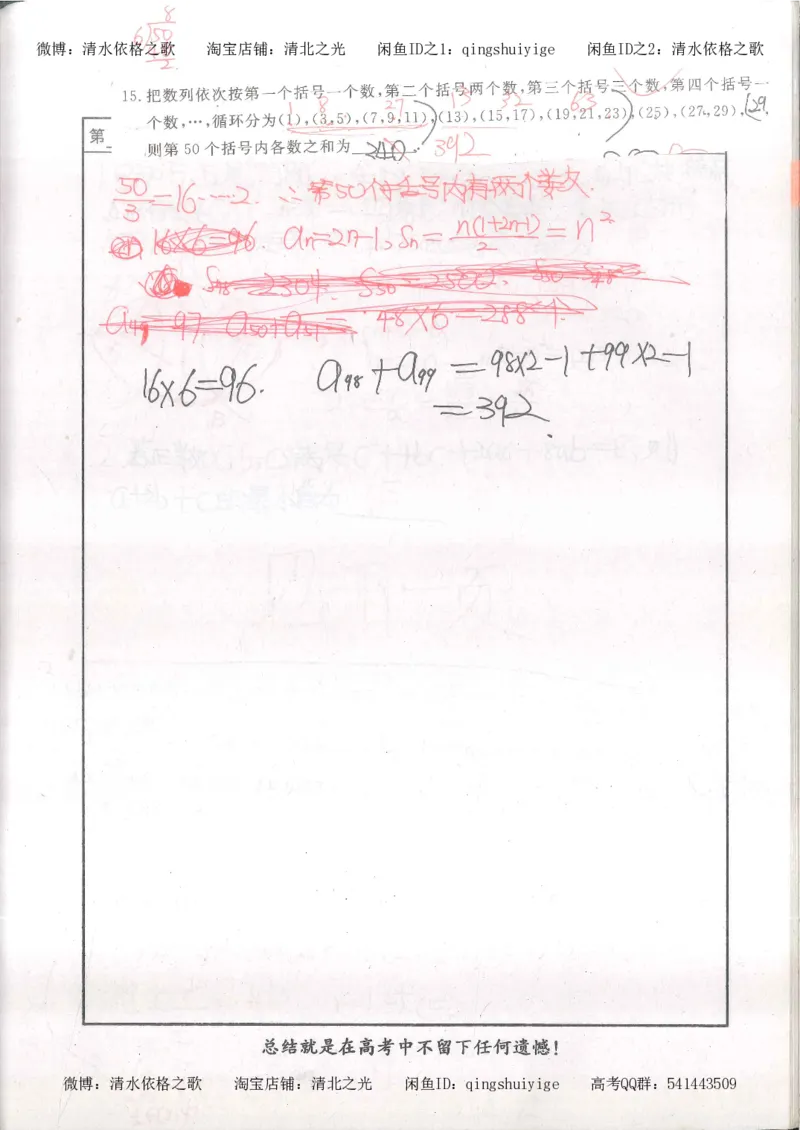 8
6√50
微博：清水依格之歌 淘宝店铺：清北之光 闲鱼ID之1：qingshuiyige 闲鱼ID之2：清水依格之歌
2
15.把数列依次按第一个括号一个数,第二个括号两个数,第三个括号三个数,第四个括号一
1 8 27 13 32 63
个数,…,循环分为(1),(3,5),(7,9,11),(13),(15,17),(19,21,23),(25),(27,29),
第
则第 50 个括号内各数之和为 392
50/3=16……2. ∴第50个括号内有两个数.
16×6=96. an=2n-1, Sn=n(1+2n-1)/2=n²
S48=2304. S50=2500. S50-S48
a49=97 a50+a51= 48×6=288个.
16×6=96. a98+a99=98×2-1+99×2-1
=392.
总结就是在高考中不留下任何遗憾!
微博：清水依格之歌 淘宝店铺：清北之光 闲鱼ID：qingshuiyige 高考QQ群：541443509